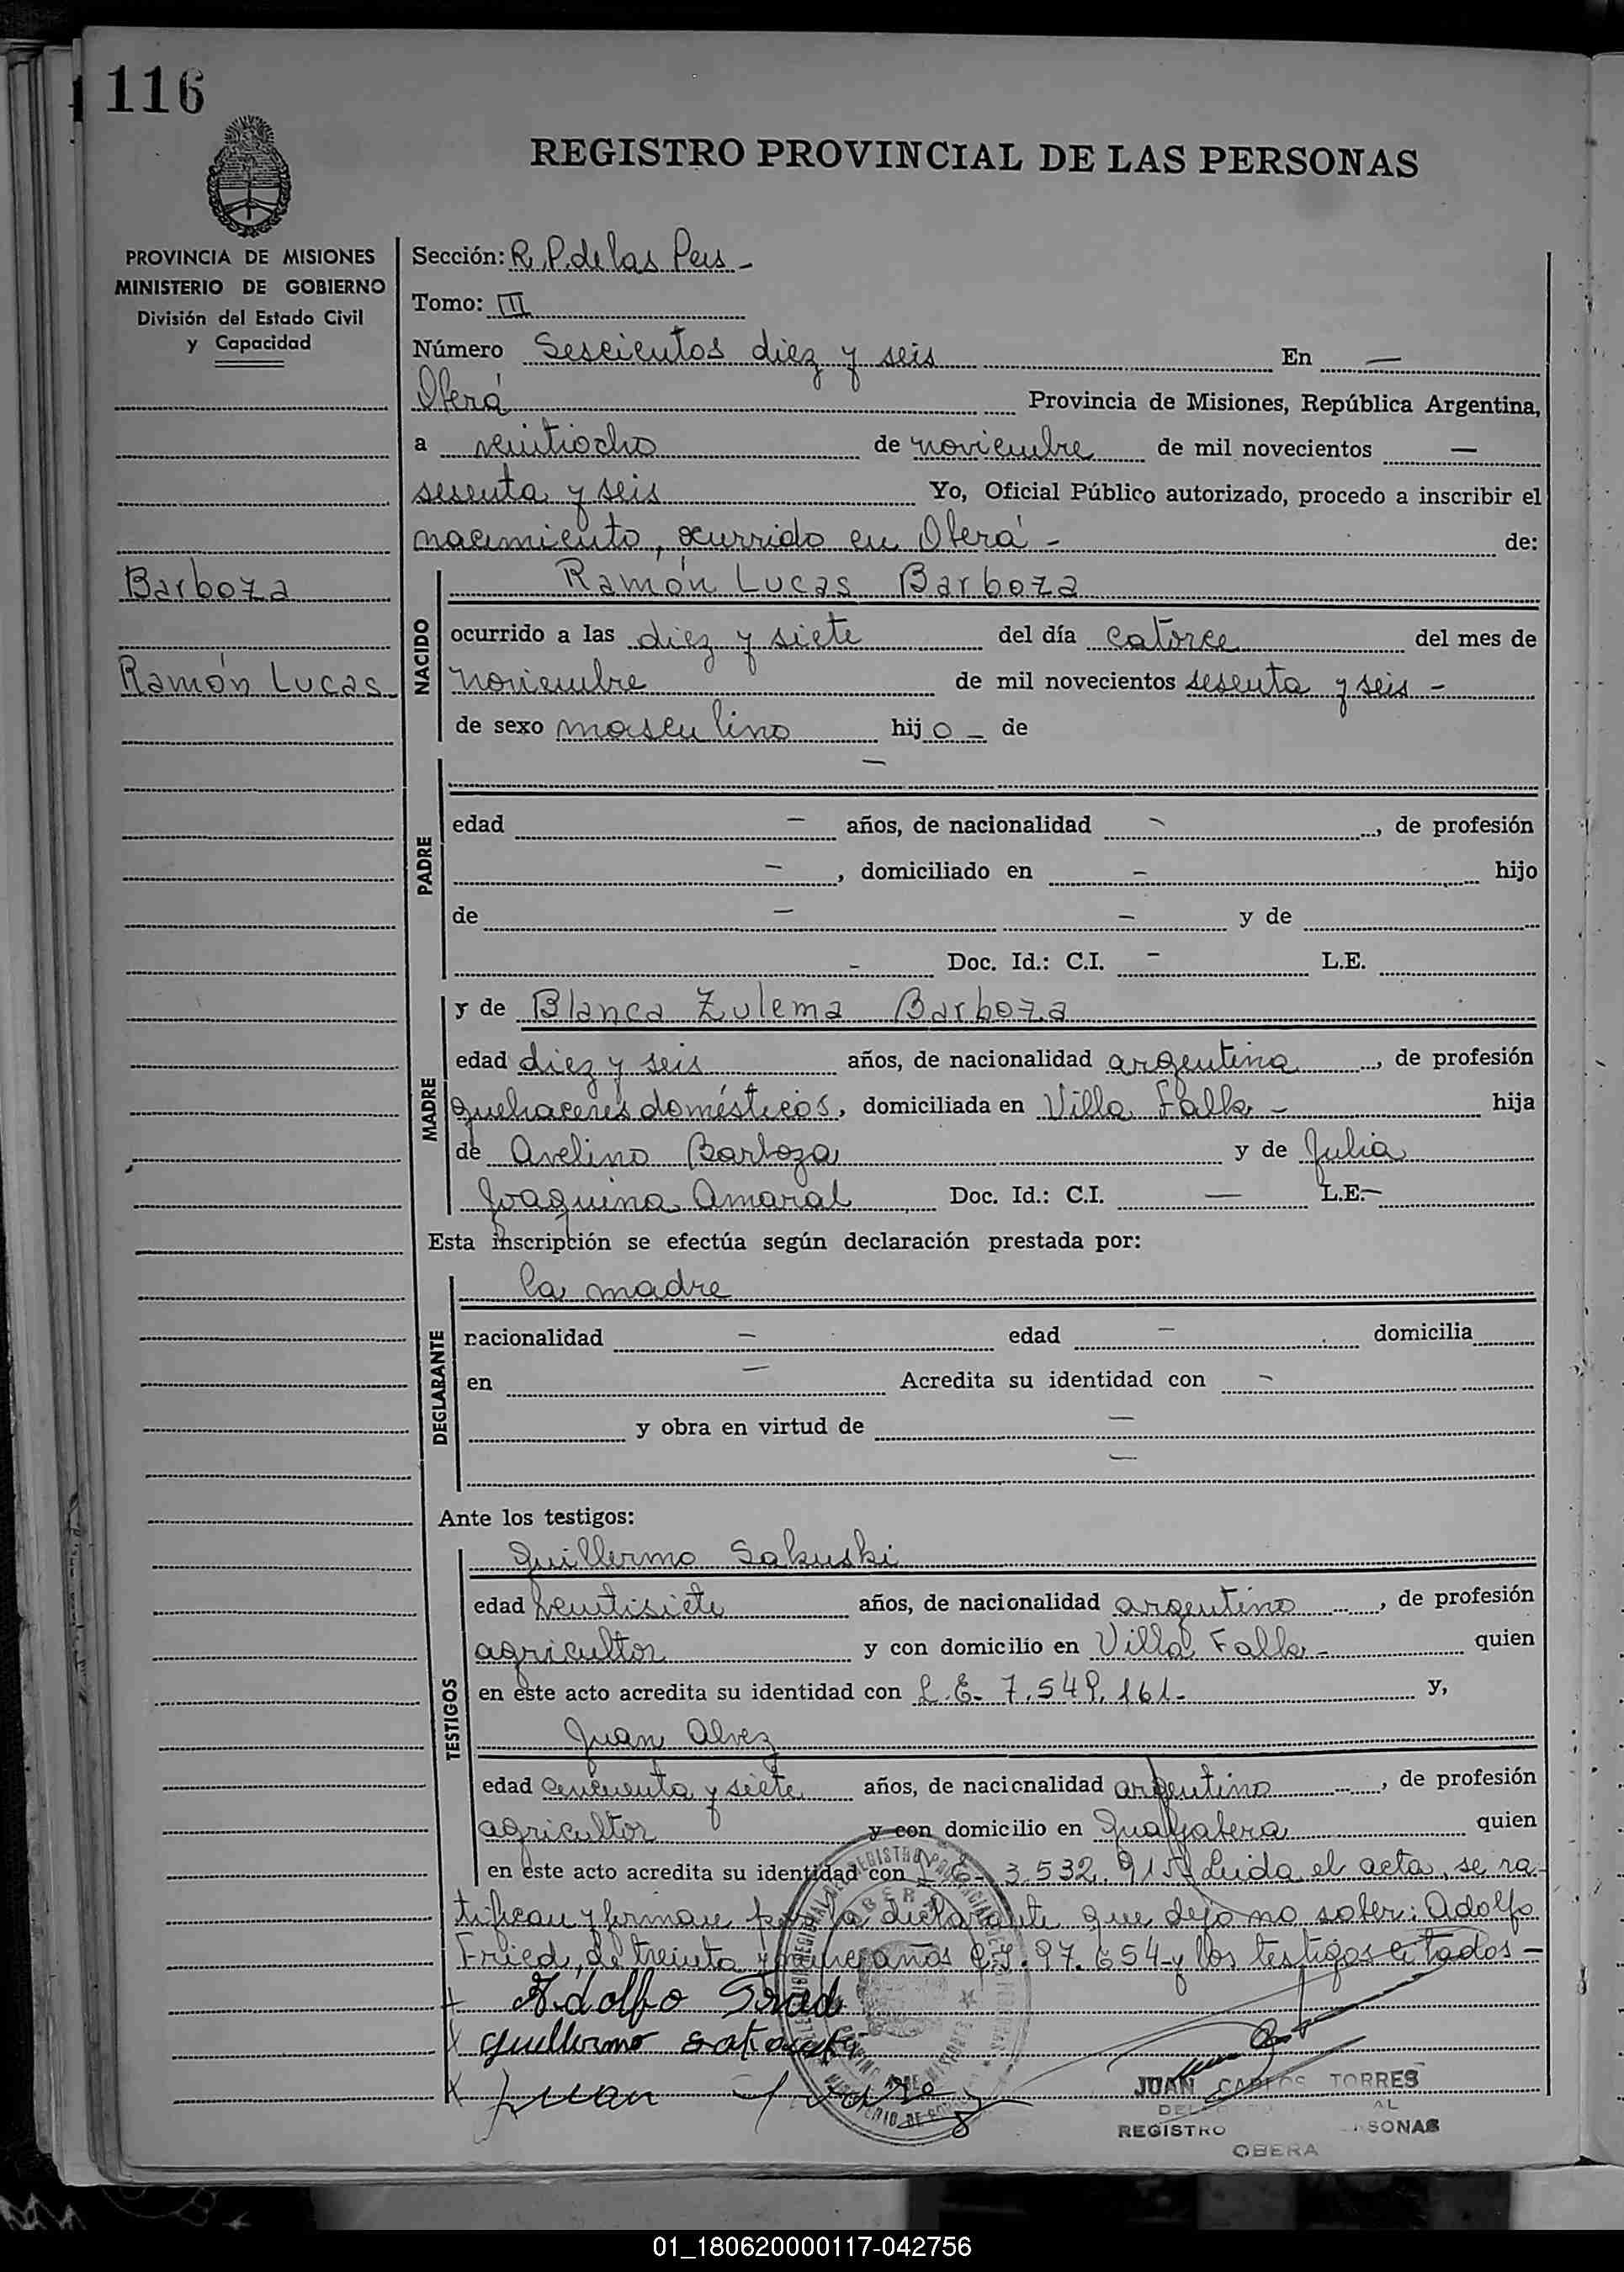 116
REGISTRO PROVINCIAL DE LAS PERSONAS
PROVINCIA DE MISIONES
MINISTERIO DE GOBIERNO
División del Estado Civil
y Capacidad
Barboza
Ramón Lucas
Sección: R. P. de las Pers -
Tomo: III
Número Sescientos diez y seis En —
Oberá Provincia de Misiones, República Argentina,
a veintiocho de noviembre de mil novecientos —
sesenta y seis Yo, Oficial Público autorizado, procedo a inscribir el
nacimiento, ocurrido en Oberá - de:
NACIDO
Ramón Lucas Barboza
ocurrido a las diez y siete del día catorce del mes de
noviembre de mil novecientos sesenta y seis -
de sexo masculino hijo - de
PADRE
—
edad — años, de nacionalidad - , de profesión
— , domiciliado en — hijo
de — — y de
- Doc. Id.: C.I. - L.E.
MADRE
y de Blanca Zulema Barboza
edad diez y seis años, de nacionalidad argentina , de profesión
quehaceres domésticos, domiciliada en Villa Falk - hija
de Avelino Barboza y de Julia
Joaquina Amaral Doc. Id.: C.I. — L.E. —
Esta inscripción se efectúa según declaración prestada por:
DECLARANTE
la madre
nacionalidad — edad — domicilia
en — Acredita su identidad con -
y obra en virtud de —
—
Ante los testigos:
TESTIGOS
Guillermo Sakuski
edad veintisiete años, de nacionalidad argentino , de profesión
agricultor y con domicilio en Villa Falk - quien
en este acto acredita su identidad con L.E. 7.549.161- y,
Juan Alvez
edad cincuenta y siete años, de nacionalidad argentino , de profesión
agricultor y con domicilio en Guayabera quien
en este acto acredita su identidad con L.E. 3.532.915 Leida el acta, se ra-
tifican y firman por la declarante que dejo no saber: Adolfo
Fried, de treinta y nueve años C.I. 97.654 y los testigos citados -
Adolfo Fried
Guillermo
Juan
JUAN CARLOS TORRES
REGISTRO
OBERA
01_180620000117-042756